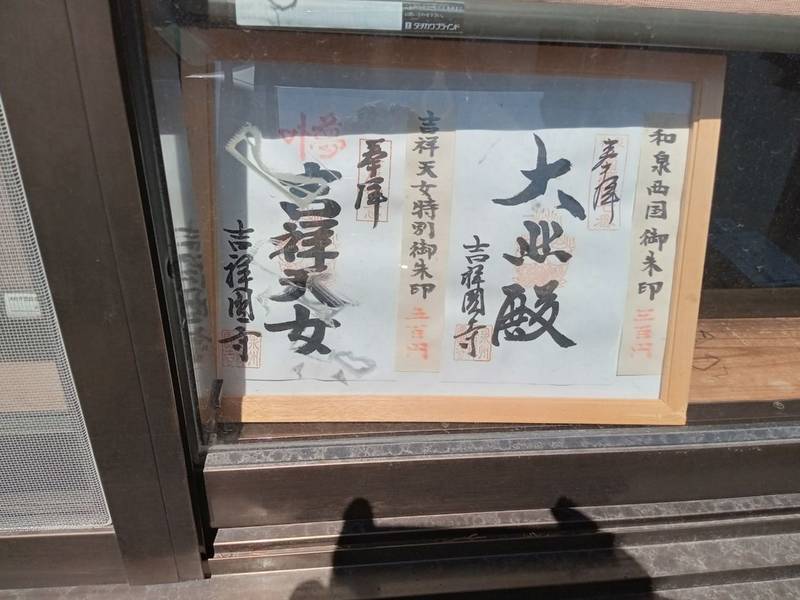 タチカワブラインド
和泉西国御朱印 三百円
奉拝
大悲殿
吉祥園寺
吉祥天女特別御朱印 三百円
奉拝
吉祥天女
吉祥園寺